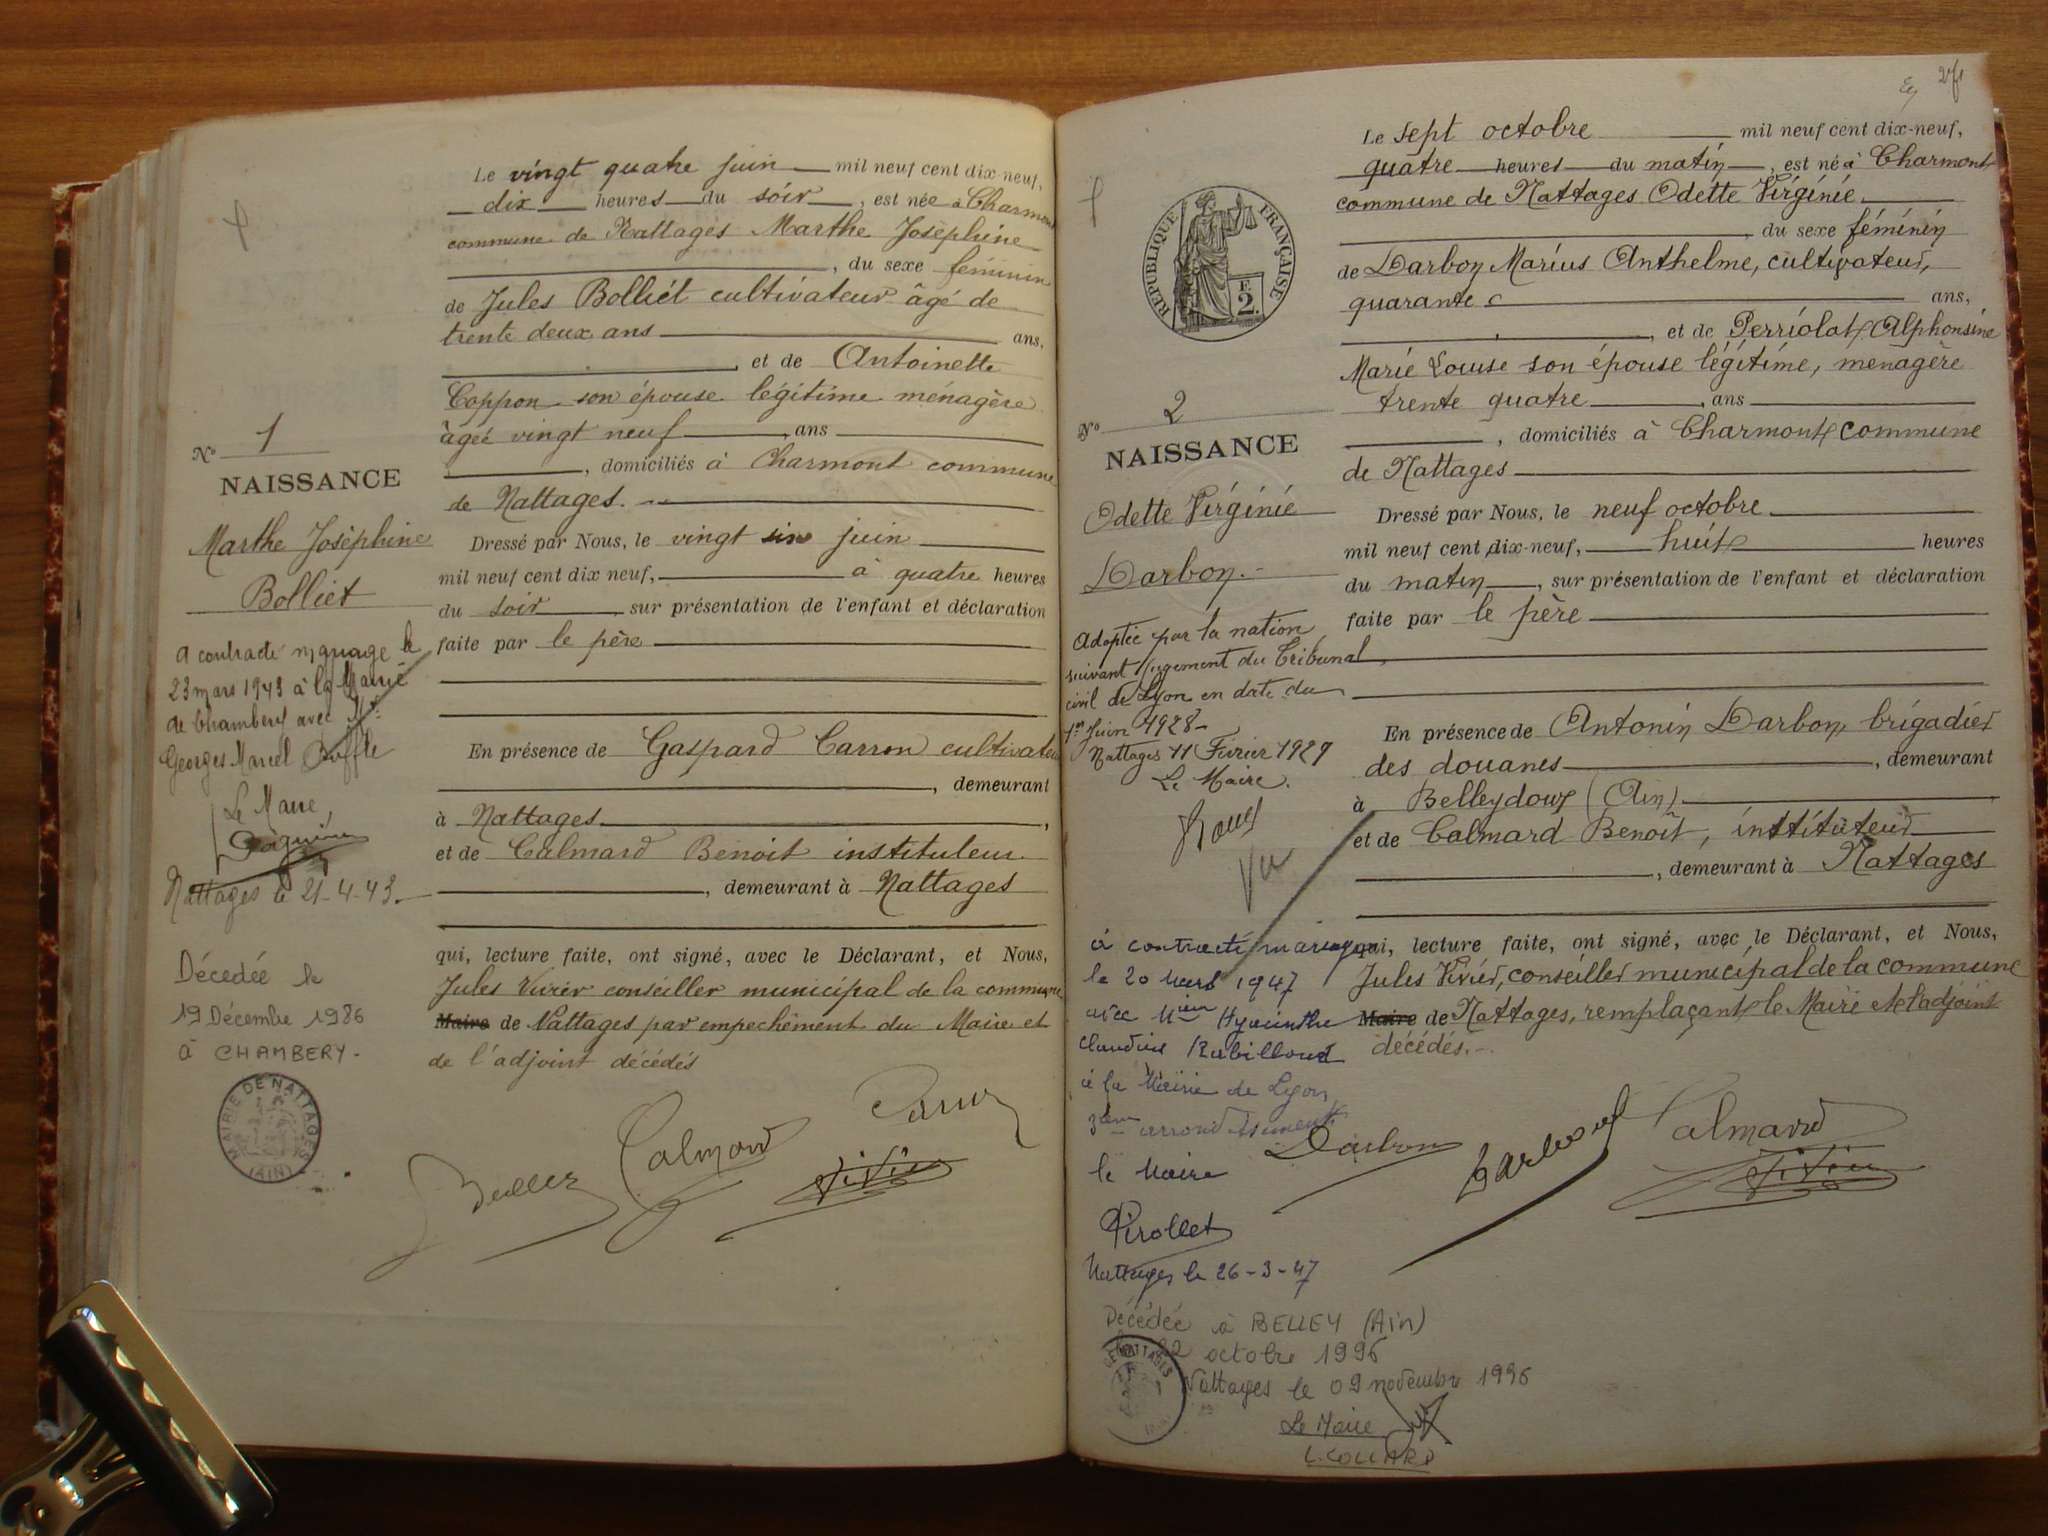 Le vingt quatre juin mil neuf cent dix neuf,
dix heures du soir, est née à Charmont
commune de Nattages Marthe Josèphine
, du sexe féminin
de Jules Bolliet cultivateur âgé de
trente deux ans ans,
, et de Antoinette
Coppon son épouse légitime ménagère
âgée vingt neuf, ans
, domiciliés à Charmont commune
de Nattages.
Dressé par Nous, le vingt six juin
mil neuf cent dix neuf, à quatre heures
du soir, sur présentation de l'enfant et déclaration
faite par le père
En présence de Gaspard Carron cultivateur
, demeurant
à Nattages,
et de Calmard Benoit instituteur
, demeurant à Nattages
qui, lecture faite, ont signé, avec le Déclarant, et Nous,
Jules Vivier conseiller municipal de la commune
Maire de Nattages par empechement du Maire et
de l'adjoint décédés
Calmard
Vivier
No 1
NAISSANCE
Marthe Josèphine
Bolliet
a contracté mariage le
23 mars 1943 à la Mairie
de Chambery avec Mr
Georges Marcel Buffle
Le Maire,
Nattages le 21-4-43.
Décédée le
19 Décembre 1986
à CHAMBERY.
MAIRIE DE NATTAGES
(AIN)
Le sept octobre mil neuf cent dix-neuf,
quatre heures du matin, est né à Charmont
commune de Nattages Odette Virginie
, du sexe féminin
de Darbon Marius Anthelme, cultivateur,
quarante ans,
, et de Perriolat Alphonsine
Marie Louise son épouse légitime, ménagère
trente quatre, ans
, domiciliés à Charmont commune
de Nattages
Dressé par Nous, le neuf octobre
mil neuf cent dix-neuf, huit heures
du matin, sur présentation de l'enfant et déclaration
faite par le père
En présence de Antonin Darbon, brigadier
des douanes, demeurant
à Belleydoux (Ain)
et de Calmard Benoît, instituteur
, demeurant à Nattages
qui, lecture faite, ont signé, avec le Déclarant, et Nous,
Jules Vivier, conseiller municipal de la commune
Maire de Nattages, remplaçant le Maire et l'adjoint
décédés.
Darbon
Darbon
Calmard
Vivier
RÉPUBLIQUE FRANÇAISE
F. 2.
No 2
NAISSANCE
Odette Virginie
Darbon.
Adoptée par la nation
suivant jugement du Tribunal
civil de Lyon en date du
1er Juin 1928
Nattages 11 Février 1929
Le Maire.
Vu
a contracté mariage
le 20 Mars 1947
avec Mien Hyacinthe
Claudius Rabilloud
à la Mairie de Lyon
3ème arrondissement
le Maire
Pirollet
Nattages le 26-3-47
Décédée à BELLEY (Ain)
octobre 1996
Nattages le 09 novembre 1996
Le Maire
L. COLLARD
DE NATTAGES